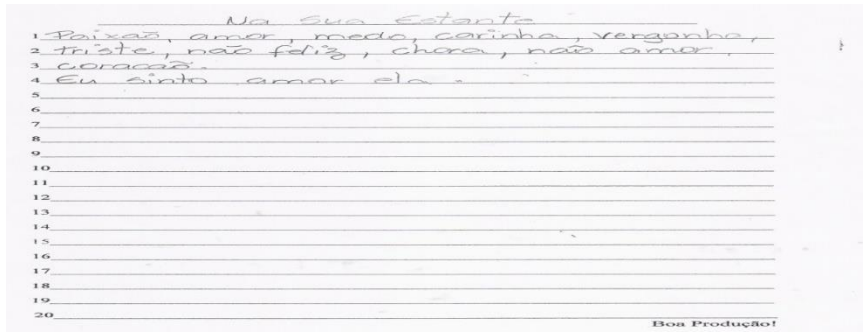 Na Sua Estante
1 Paixaõ, amor, medo, carinha, verganha,
2 triste, naõ feliz, chora, naõ amor.
3 coracaõ.
4 Eu sinto amor ela.
5
6
7
8
9
10
11
12
13
14
15
16
17
18
19
20
Boa Produção!